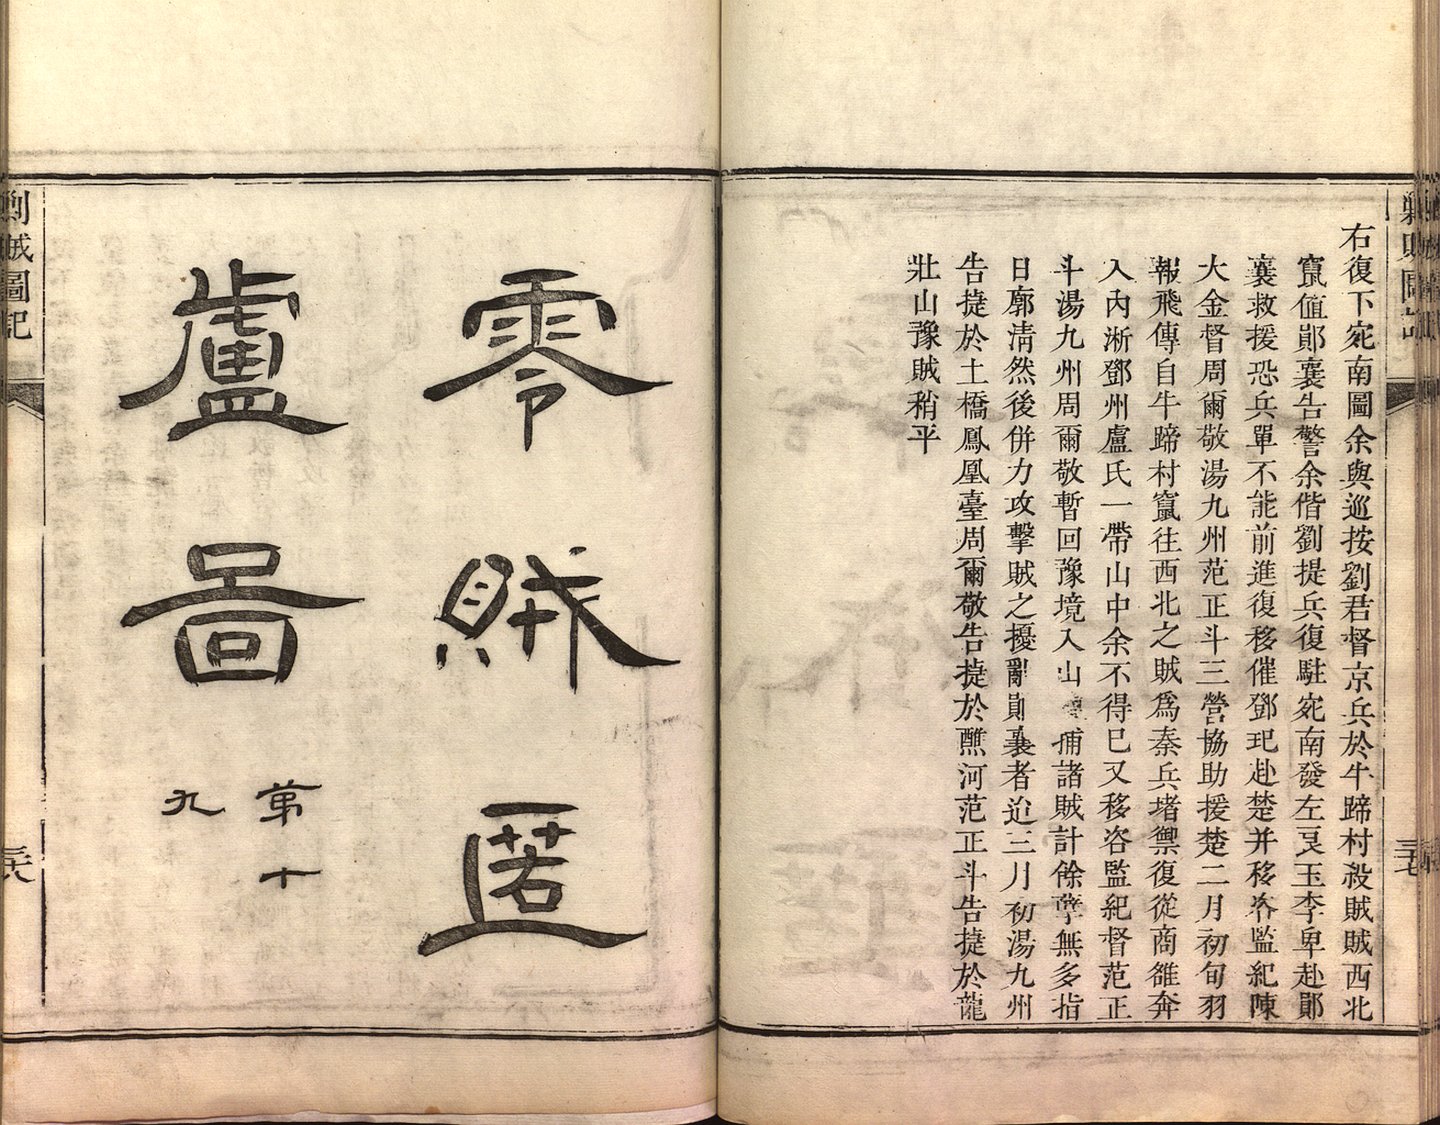 右復下宛南圖余與巡按劉君督京兵於牛蹄村殺賊賊西北
竄值鄖襄告警余偕劉提兵復駐宛南發左良玉李卑赴鄖
襄救援恐兵單不能前進復移催鄧玘赴楚并移咨監紀陳
大金督周爾敬湯九州范正斗三營協助援楚二月初旬羽
報飛傳自牛蹄村竄往西北之賊為秦兵堵禦復從商雒奔
入內淅鄧州盧氏一帶山中余不得已又移咨監紀督范正
斗湯九州周爾敬暫回豫境入山 捕諸賊計餘孽無多指
日廓清然後併力攻擊賊之擾亂鄖襄者迨三月初湯九州
告㨗於土橋鳳凰臺周爾敬告㨗於醮河范正斗告㨗於龍
壯山豫賊稍平
三十七
零賊匿
盧啚
第十
九
剿賊圖記
三十六